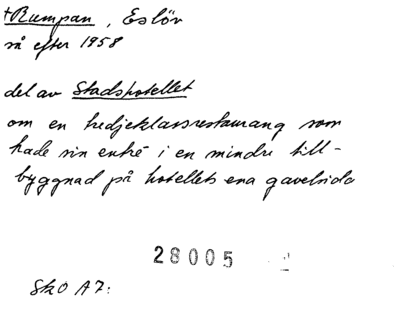 †Rumpan, Eslöv
så efter 1958
del av Stadshotellet
om en tredjeklassrestaurang som
hade sin entré i en mindre till-
byggnad på hotellets ena gavelsida
28005
Sk O A7: